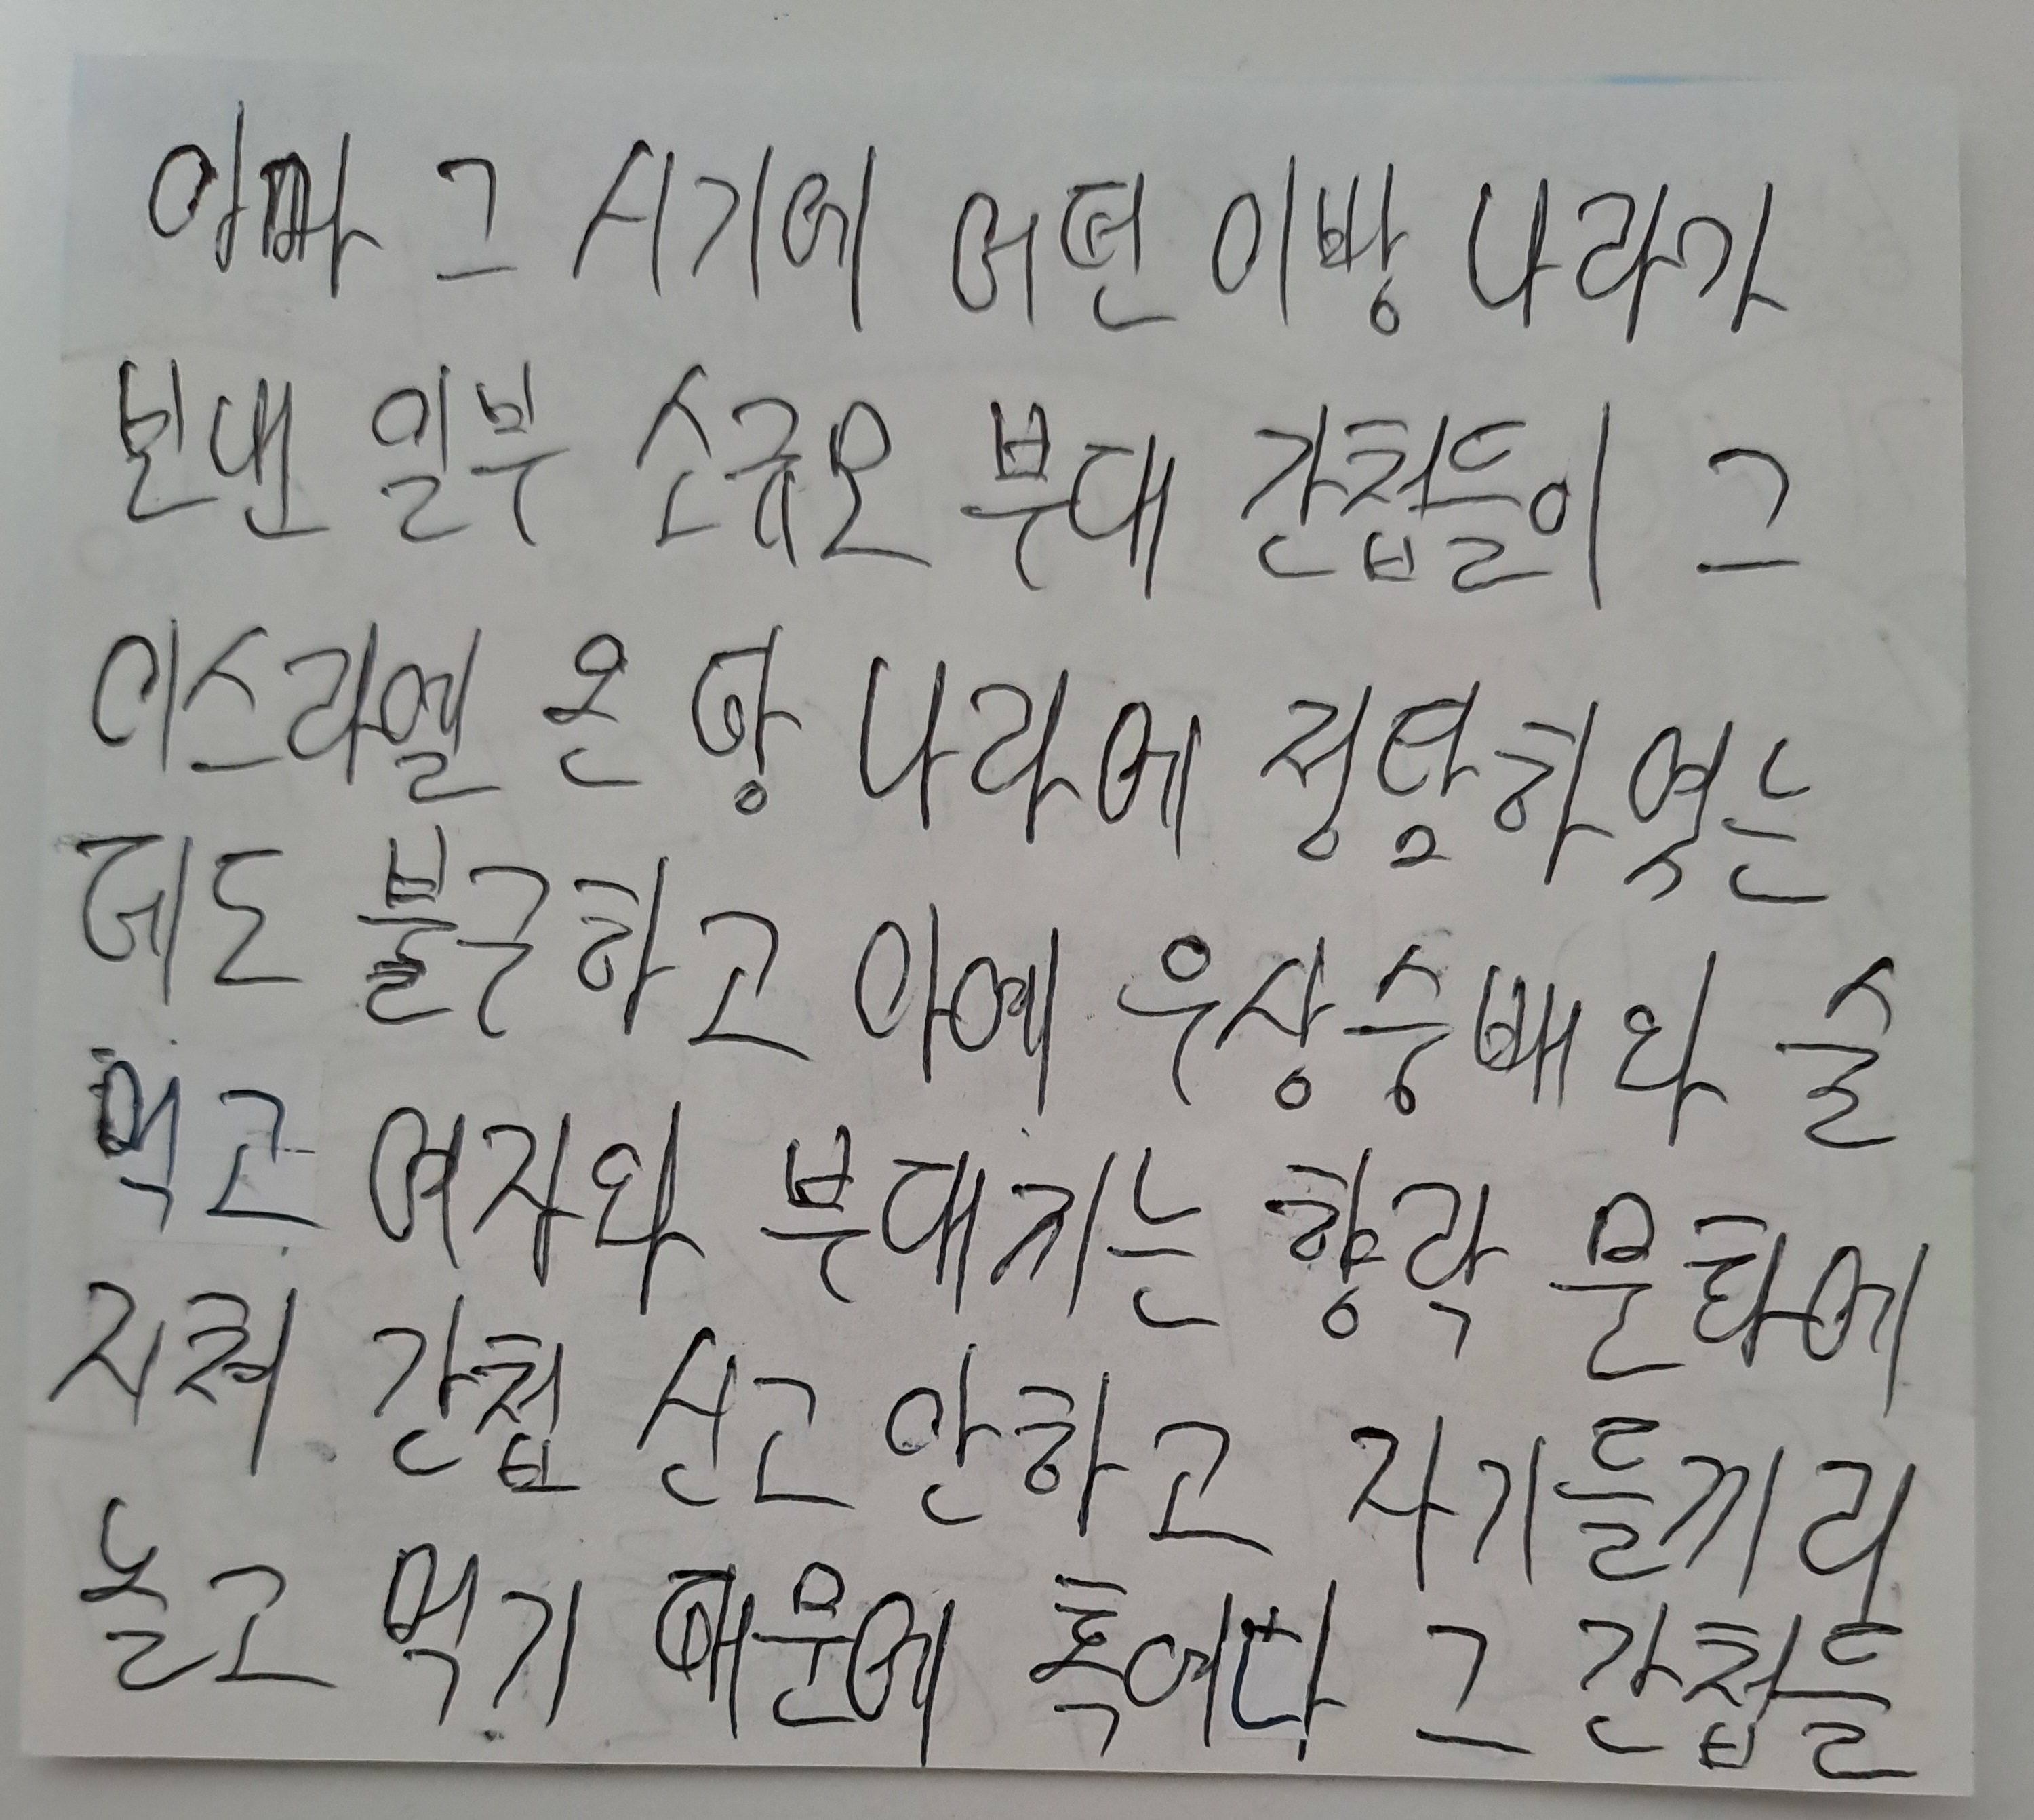 아빠 그 시기에 어떤 이방 나라가
보낸 일부 소규모 부대 간첩들이 그
이스라엘 온 땅 나라에 정탐하였는
데도 불구하고 아예 우상숭배와 술
먹고 여자와 부대끼는 향락 문화에
지쳐 간첩 신고 안하고 자기들끼리
놀고 먹기 때문에 툭에다 그 간첩들